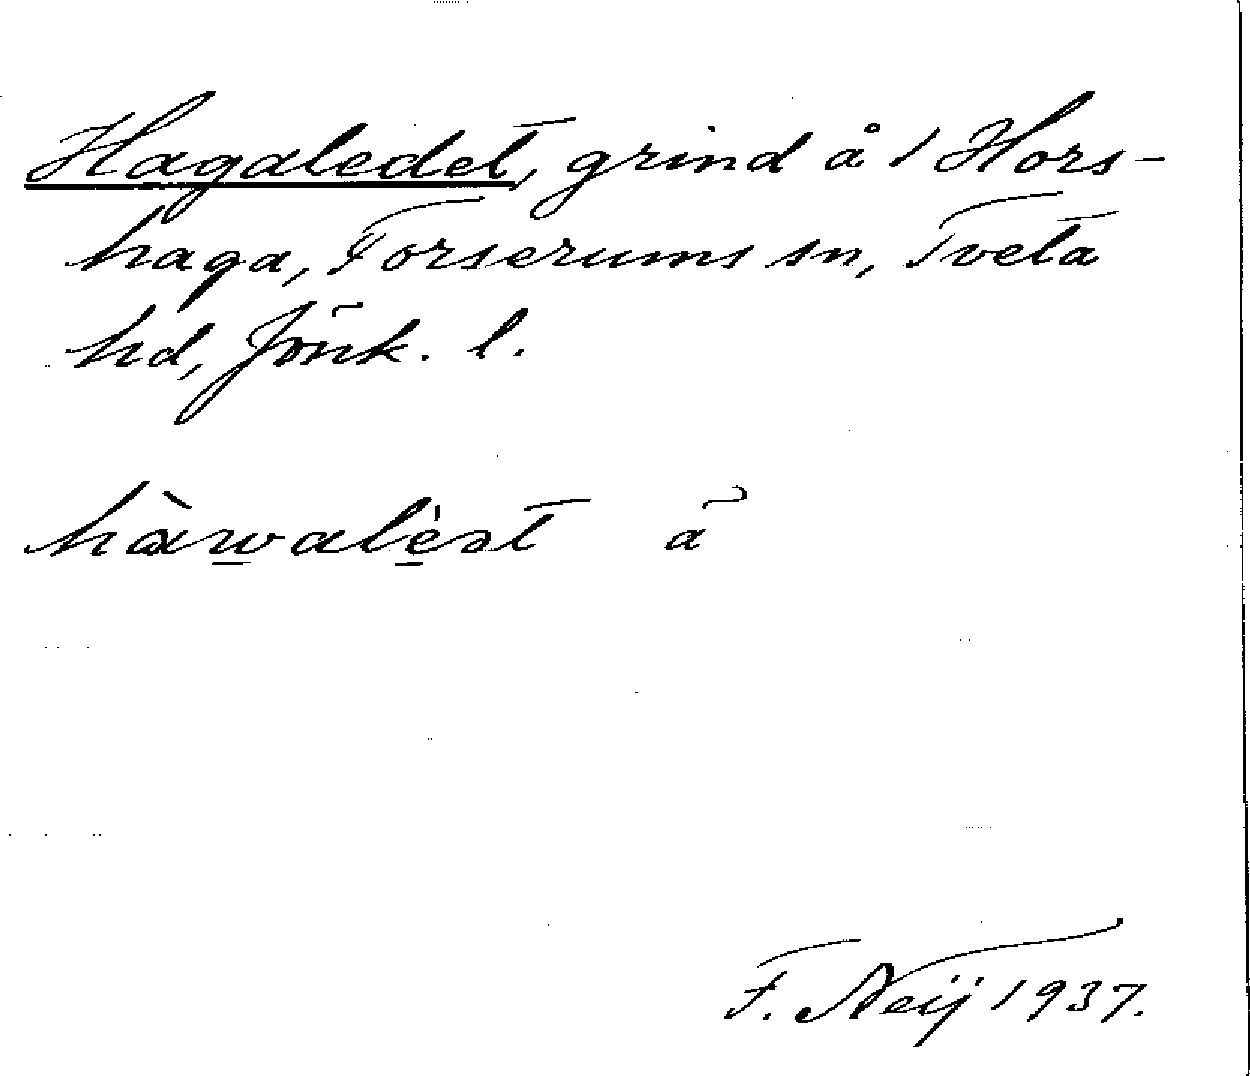 Hagaledet, grind å 1 Hors-
haga, Forserums sn, Tveta
hd, Jönk. l.
hàwalèət ã
F. Neij 1937.